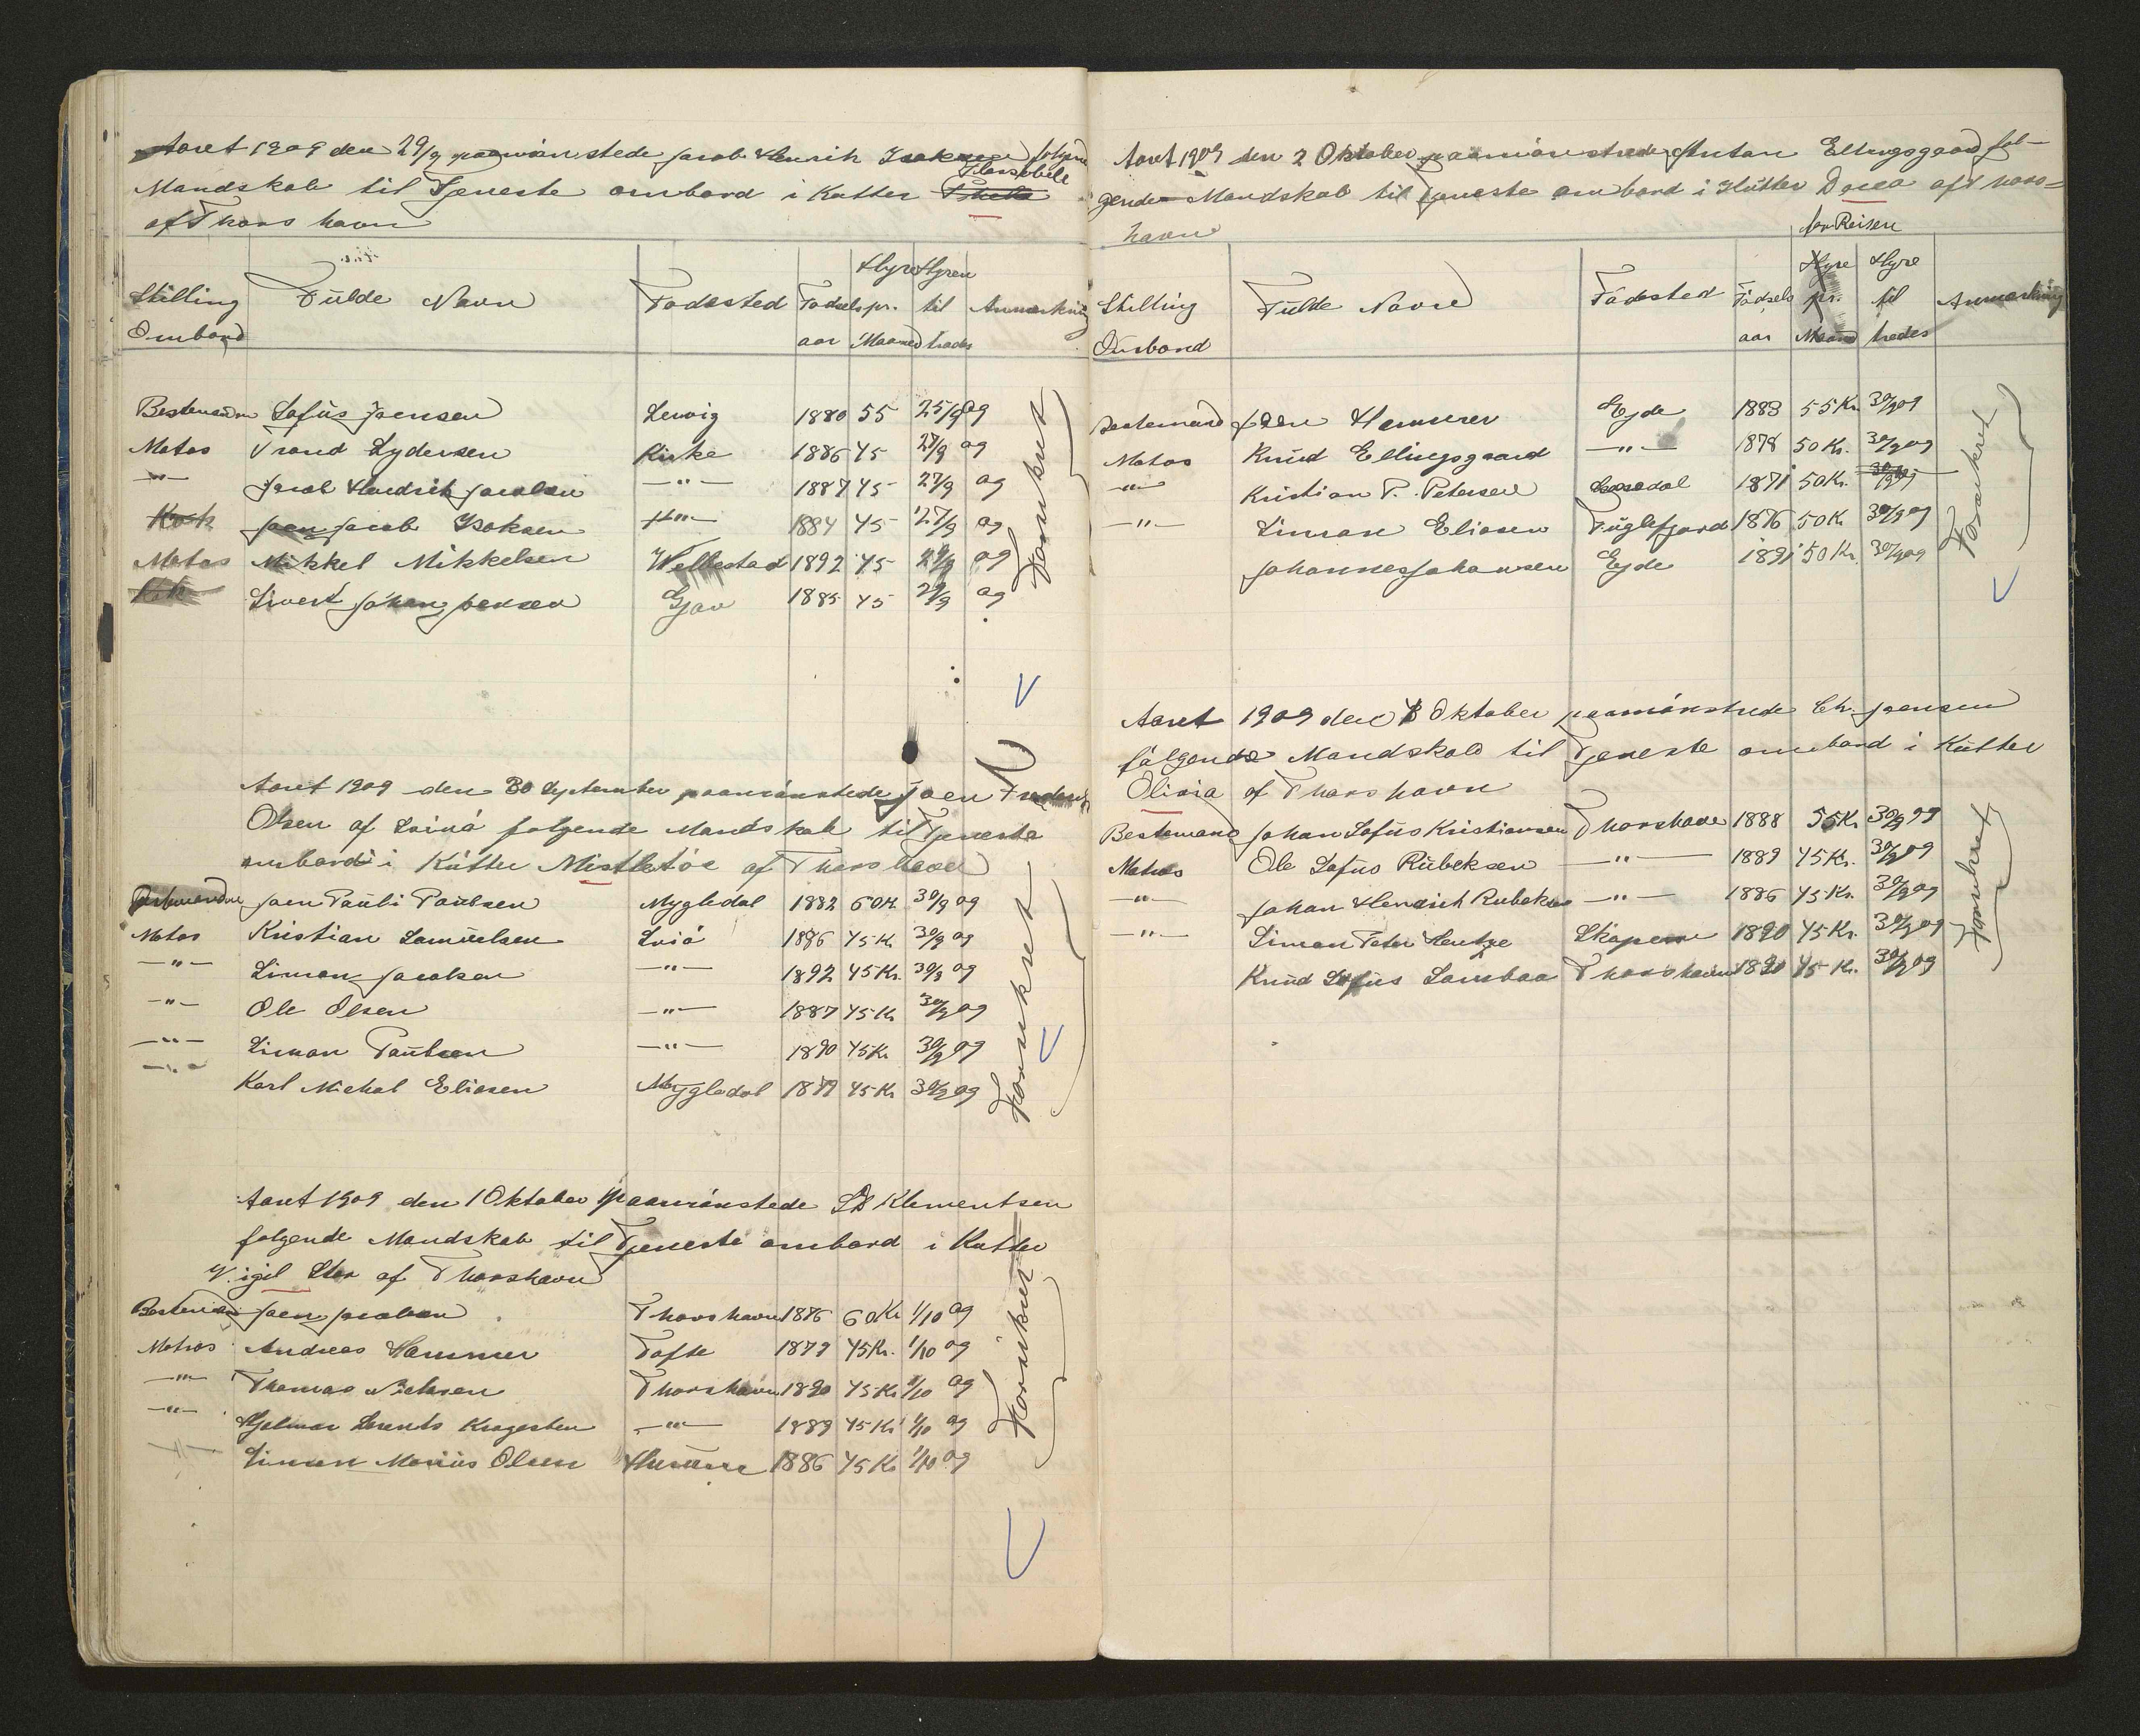 Aaret 1909 den 29/9 paamönstrede Jacob Henrik Isaksen følgende
Florabelle
Mandskab til Tjeneste ombord i Kutter
af Thorshavn
Stilling Ombord Fulde Navn Fødested Fødselsaar Hyre pr. Maaned Hyren tiltrædes Anmærkning
Bestemand Sofus Joensen Lervig 1880 55 25/9 09
Matos Trond Lydersen Kirke 1886 45 27/9 09
—"— Jacob Hendrik Jacobsen —"— 1887 45 27/9 09
Kok Joen Jacob Isaksen —"— 1884 45 27/9 09
Matos Mikkel Mikkelsen Welbestad 1892 45 29/9 09
Kok Sivert Johan Jensen Gjov 1885 45 29/9 09
Forukret
Aaret 1909 den 30 September paamönstrede Joen Frederik
Olsen af Svinø følgende Mandskab til Tjeneste
ombord i Kutter Mistletoe af Thorshavn
Bestemand Joen Pauli Poulsen Mygledal 1882 60 Kr 30/9 09
Matos Kristian Samuelsen Sviø 1886 45 Kr 30/9 09
—"— Simon Jacobsen —"— 1892 45 Kr. 30/9 09
—"— Ole Olsen —"— 1887 45 Kr 30/9 09
—"— Simon Poulsen —"— 1890 45 Kr 30/9 09
—"— Karl Michal Eliasen Mygledal 1879 45 Kr 30/9 09
Aaret 1909 den 1 Oktober paamönstrede Klementsen
følgende Mandskab til Tjeneste ombord i Kutter
Vigil Star af Thorshavn
Bestemand Joen Jacobsen Thorshavn 1886 60 Kr 1/10 09
Matros Andreas Hammer Tofte 1879 45 Kr. 1/10 09
—"— Thomas Nielsen Thorshavn 1890 45 Kr 1/10 09
—"— Hjalmar Lorents Kragesteen —"— 1889 45 Kr 1/10 09
—"— Simon Marius Olsen 1886 45 Kr 1/10 09
Aaret 1909 den 2 Oktober paamönstrede Anton Ellingsgaard føl-
gende Mandskab til Tjeneste ombord i Kutter af Thors=
havn
for Reisen
Stilling Ombord Fulde Navn Fødested Fødselsaar Hyre pr. Maaned Hyre tiltrædes Anmærkning
Bestemand Joen Hammer Ejde 1883 55 Kr. 30/9 09
Matos Knud Ellingsgaard —"— 1878 50 Kr. 30/9 09
—"— Kristian P. Petersen 1871 50 Kr. 30/9 09
—"— Simon Eliasen Fuglefjord 1876 50 Kr 30/9 09
Johannes Johansen Ejde 1891 50 Kr. 30/9 09
Aaret 1909 den Oktober paamönstrede Chr. Joensen
følgende Mandskab til Tjeneste ombord i Kutter
Olivia af Thorshavn
Bestemand Johan Sofus Kristiansen Thorshavn 1888 55 Kr 30/9 09
Matros Ole Sofus Rubeksen —"— 1889 45 Kr. 30/9 09
—"— Johan Henrich Rubeksen —"— 1886 45 Kr. 30/9 09
—"— Simon Peter Hentze Skapene 1890 45 Kr. 30/9 09
Knud Sofus Lambaa Thorshavn 1890 45 Kr. 30/9 09